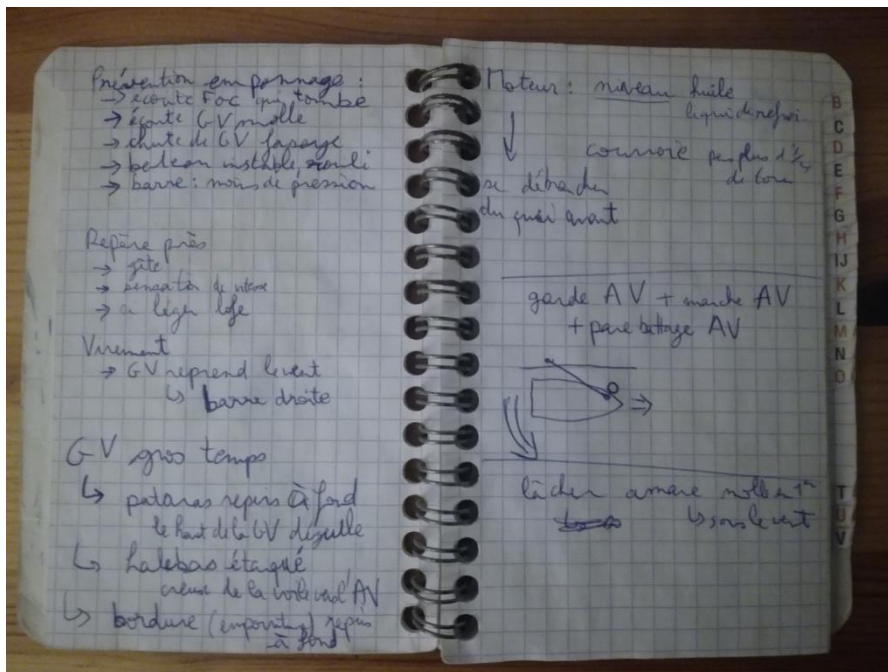 Prévention empannage :
→ écoute Foc qui tombe
→ écoute GV molle
→ chute de GV faseye
→ bateau instable, rouli
→ barre : moins de pression
Repère près
→ gîte
→ sensation de vitesse
→ a léger lofe
Virement
→ GV reprend le vent
↳ barre droite
GV gros temps
↳ pataras repris à fond
le haut de la GV dévrille
↳ halebas étarqué
creux de la voile vers l'AV
↳ bordure (empointure) repris
à fond
Moteur : niveau huile
liquide refroi.
courroie pas plus d'1/4
de tour
↓
se détacher
du quai avant
garde AV + marche AV
+ pare battage AV
lâcher amare molle en 1er
↳ sous le vent
B
C
D
E
F
G
H
IJ
K
L
M
N
O
T
U
V